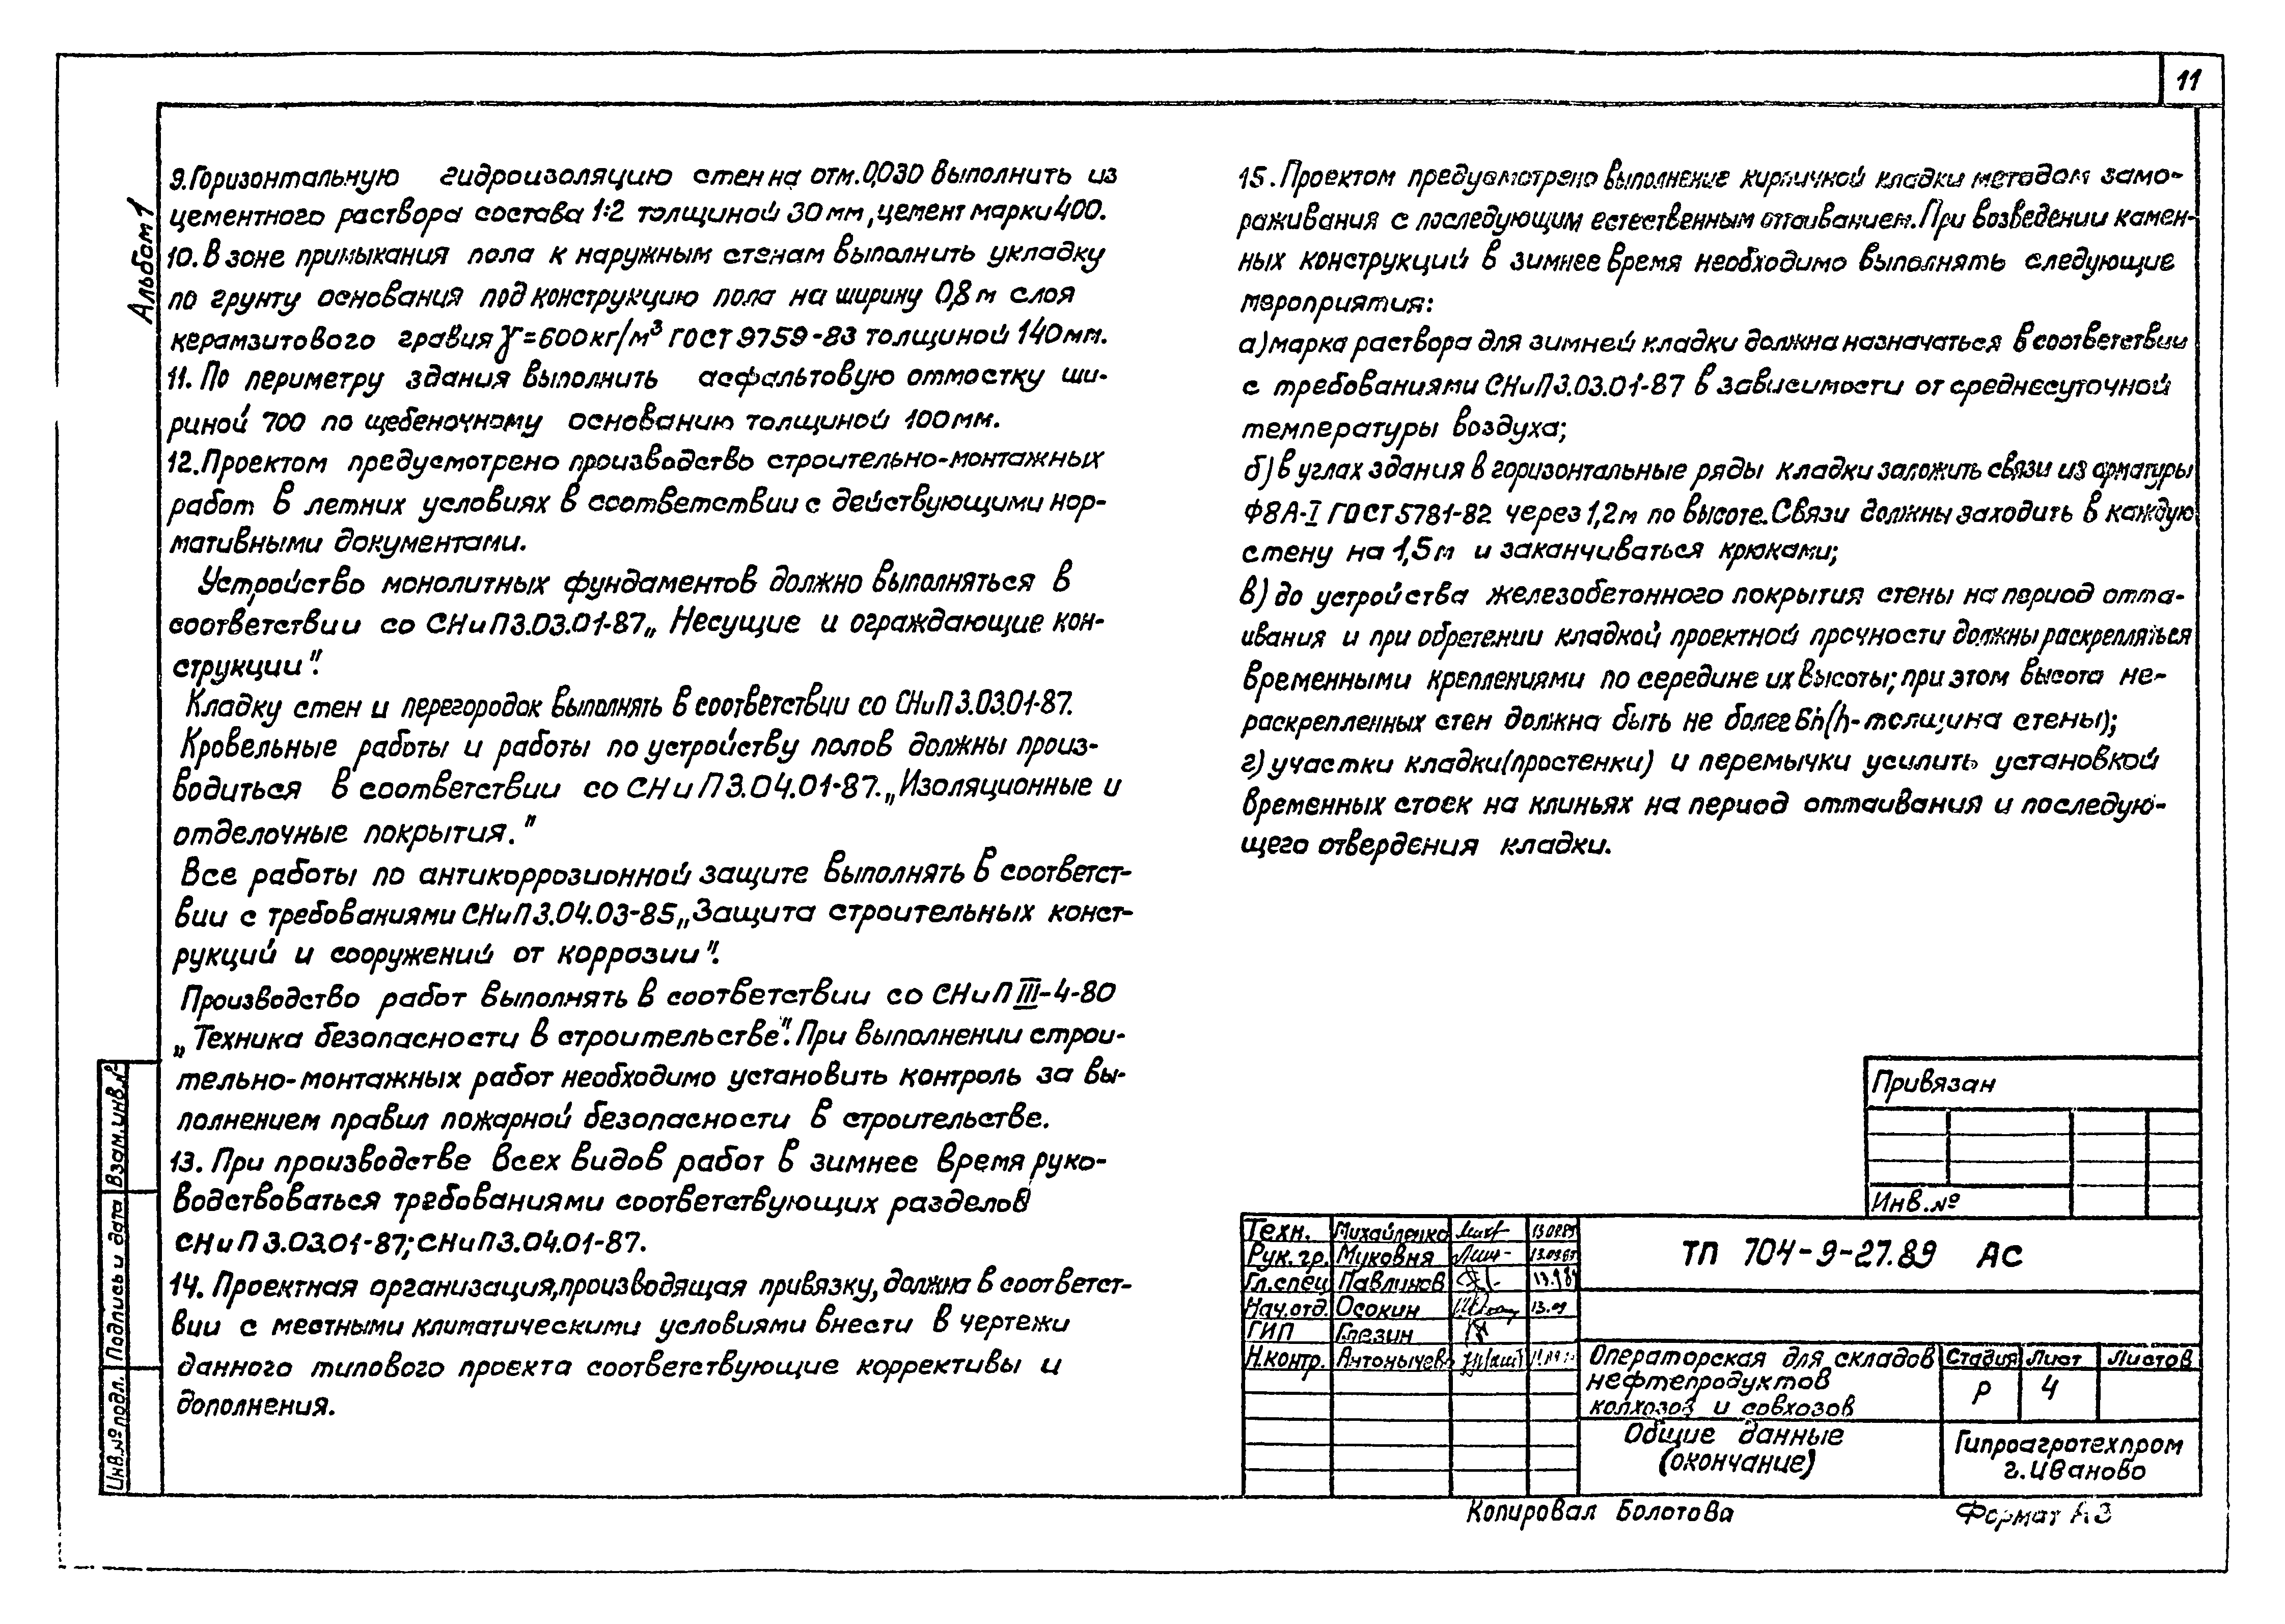 11
Альбом 1
9. Горизонтальную гидроизоляцию стен на отм. 0,030 выполнить из
цементного раствора состава 1:2 толщиной 30 мм, цемент марки 400.
10. В зоне примыкания пола к наружным стенам выполнить укладку
по грунту основания под конструкцию пола на ширину 0,8 м слоя
керамзитового гравия γ=600кг/м³ ГОСТ 9759-83 толщиной 140мм.
11. По периметру здания выполнить асфальтовую отмостку ши-
риной 700 по щебеночному основанию толщиной 100мм.
12. Проектом предусмотрено производство строительно-монтажных
работ в летних условиях в соответствии с действующими нор-
мативными документами.
Устройство монолитных фундаментов должно выполняться в
соответствии со СНиП 3.03.01-87 „Несущие и ограждающие кон-
струкции".
Кладку стен и перегородок выполнять в соответствии со СНиП 3.03.01-87.
Кровельные работы и работы по устройству полов должны произ-
водиться в соответствии со СНиП 3.04.01-87. „Изоляционные и
отделочные покрытия."
Все работы по антикоррозионной защите выполнять в соответст-
вии с требованиями СНиП 3.04.03-85 „Защита строительных конст-
рукций и сооружений от коррозии".
Производство работ выполнять в соответствии со СНиП III-4-80
„Техника безопасности в строительстве". При выполнении строи-
тельно-монтажных работ необходимо установить контроль за вы-
полнением правил пожарной безопасности в строительстве.
13. При производстве всех видов работ в зимнее время руко-
водствоваться требованиями соответствующих разделов
СНиП 3.03.01-87; СНиП 3.04.01-87.
14. Проектная организация, производящая привязку, должна в соответст-
вии с местными климатическими условиями внести в чертежи
данного типового проекта соответствующие коррективы и
дополнения.
15. Проектом предусмотрено выполнение кирпичной кладки методом замо-
раживания с последующим естественным оттаиванием. При возведении камен-
ных конструкций в зимнее время необходимо выполнять следующие
мероприятия:
а) марка раствора для зимней кладки должна назначаться в соответствии
с требованиями СНиП 3.03.01-87 в зависимости от среднесуточной
температуры воздуха;
б) в углах здания в горизонтальные ряды кладки заложить связи из арматуры
Ф8А-I ГОСТ 5781-82 через 1,2м по высоте. Связи должны заходить в каждую
стену на 1,5м и заканчиваться крюками;
в) до устройства железобетонного покрытия стены на период отта-
ивания и при обретении кладкой проектной прочности должны раскрепляться
временными креплениями по середине их высоты; при этом высота не-
раскрепленных стен должна быть не более 6h (h-толщина стены);
г) участки кладки (простенки) и перемычки усилить установкой
временных стоек на клиньях на период оттаивания и последую-
щего отвердения кладки.
Привязан
Инв. №
Техн. Михайленко
Рук. гр. Муковня
Гл. спец Павлинов
Нач. отд. Осокин 13.09
ГИП Глезин
Н. контр. Антонычева
ТП 704-9-27.89 АС
Операторская для складов
нефтепродуктов
колхозов и совхозов
Стадия Лист Листов
Р 4
Общие данные
(окончание)
Гипроагротехпром
г. Иваново
Копировал Болотова
Формат А3
Взам. инв. №
Подпись и дата
Инв. № подл.